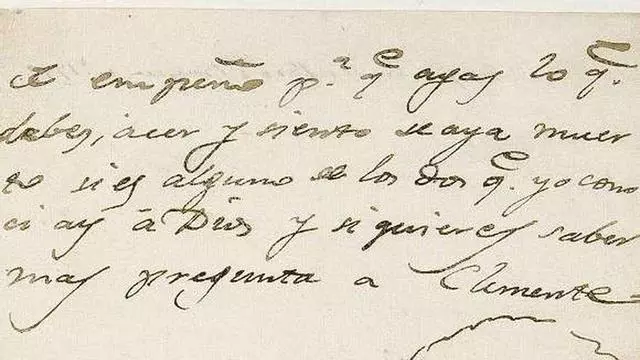 I empeño p.ª q.e agas lo q.e
debes, acer y siento se aya muer
to si es alguno de los dos q.e yo cono
ci ay â Dios y si quieres saber
mas pregunta a Clemente